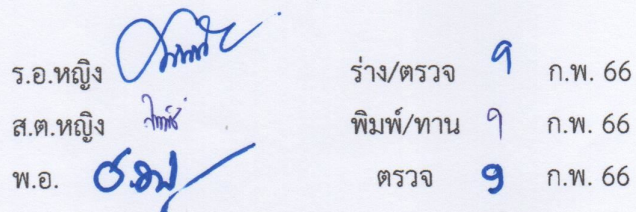 ร.อ.หญิง ร่าง/ตรวจ 9 ก.พ. 66
ส.ต.หญิง พิมพ์/ทาน 9 ก.พ. 66
พ.อ. ตรวจ 9 ก.พ. 66